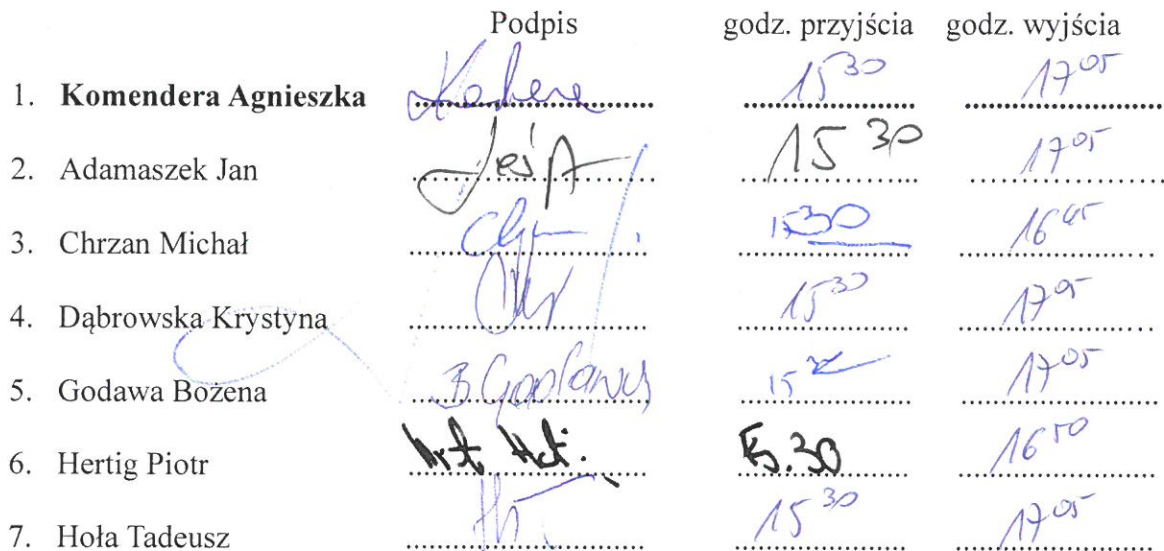 Podpis godz. przyjścia godz. wyjścia
1. Komendera Agnieszka 15³⁰ 17⁰⁵
2. Adamaszek Jan 15 30 17⁰⁵
3. Chrzan Michał 15³⁰ 16⁴⁵
4. Dąbrowska Krystyna 15³⁰ 17⁰⁵
5. Godawa Bożena 15³⁰ 17⁰⁵
6. Hertig Piotr 15.30 16⁵⁰
7. Hoła Tadeusz 15³⁰ 17⁰⁵